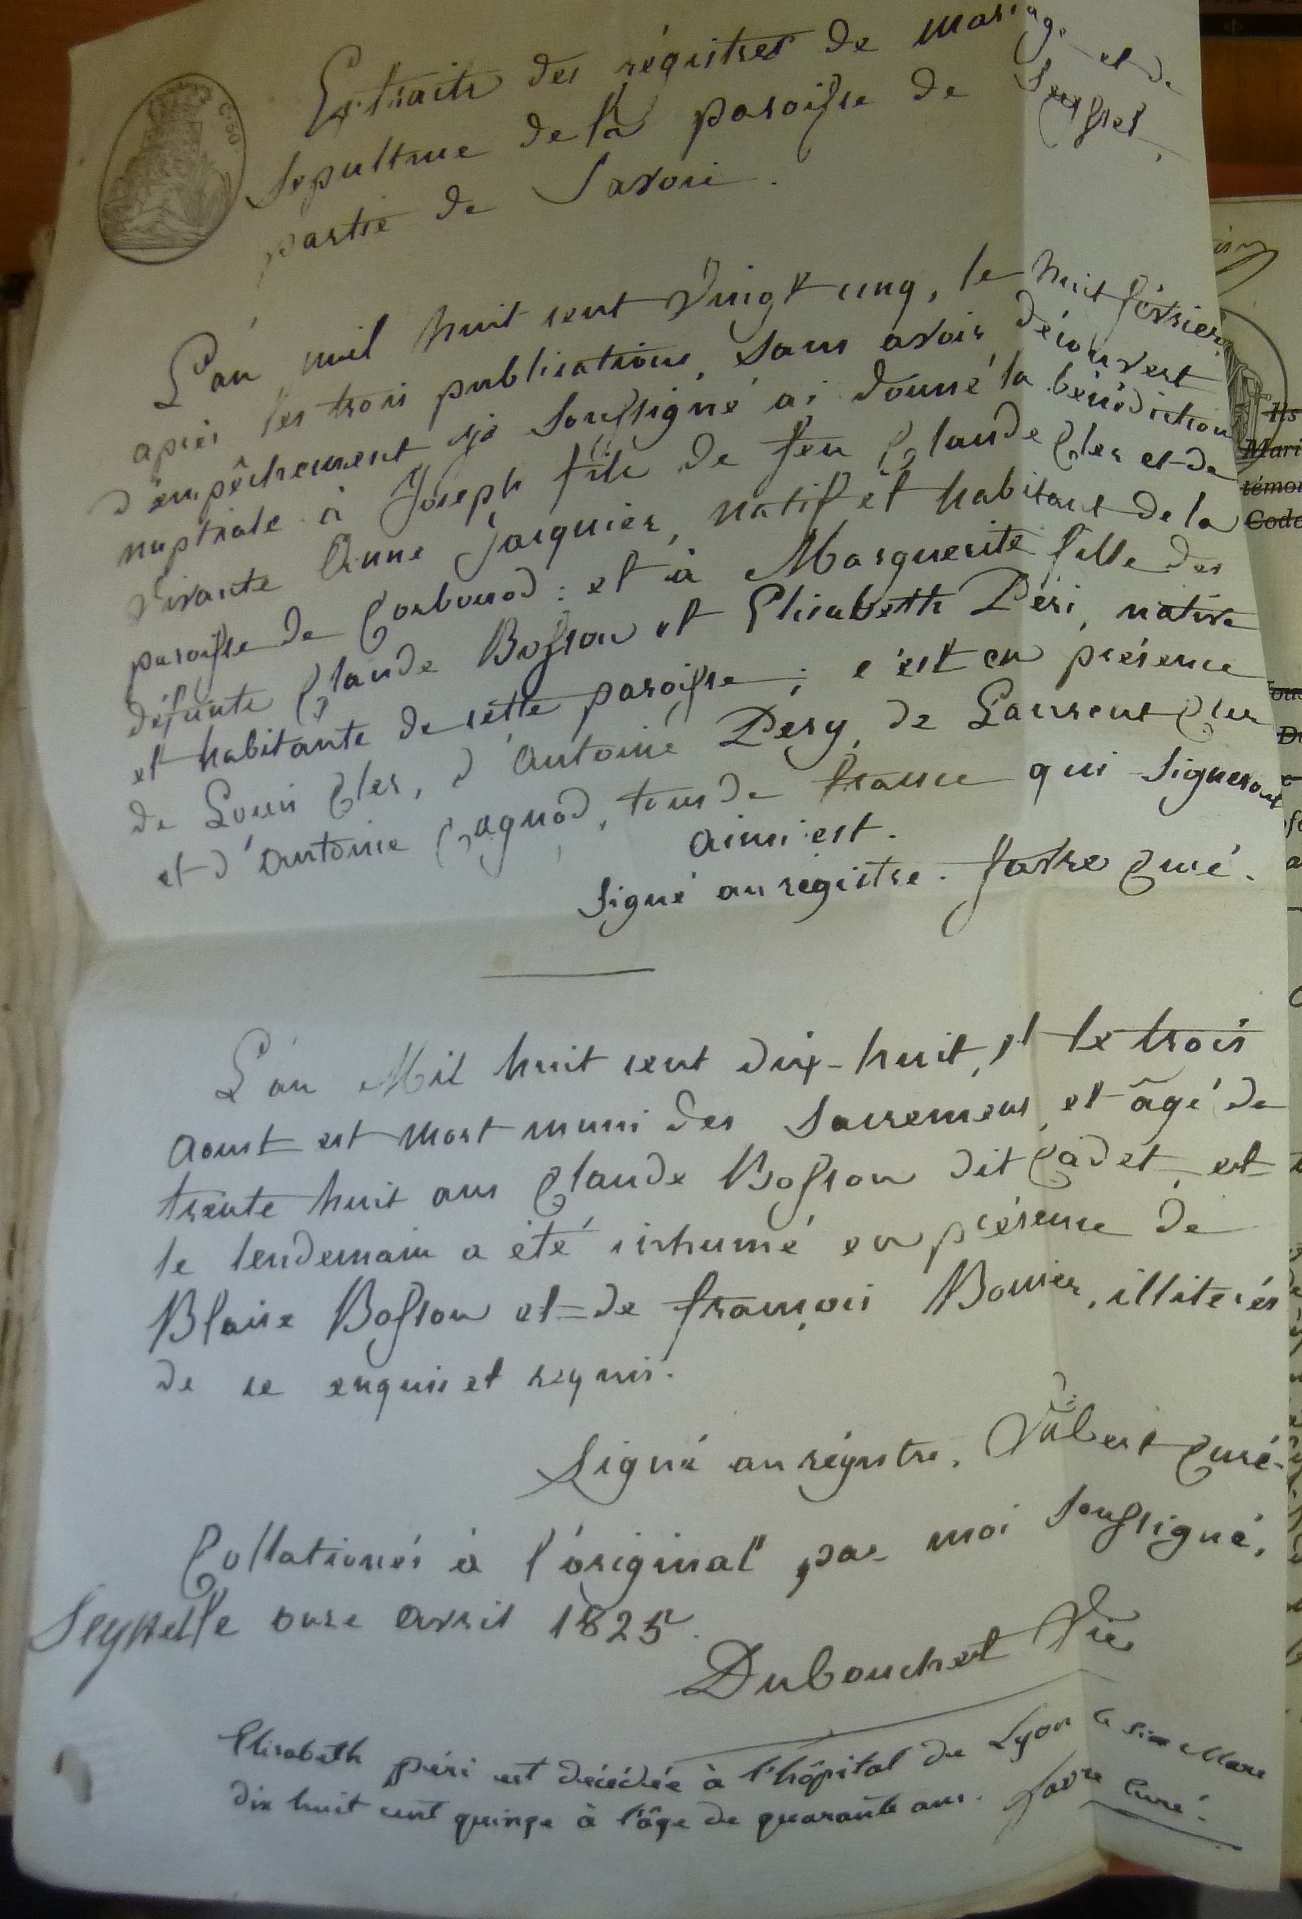 C. 50
Extraits des régistres de mariage et de
sepulture de la paroisse de Seyssel,
partie de Savoie.
L'an mil huit cent vingt cinq, le huit février,
après les trois publications, sans avoir découvert
d'empêchement je soussigné ai donné la bénédiction
nuptiale à Joseph fils de feu Claude Cler et de
vivante Anne Jacquier, natif et habitant de la
paroisse de Corbonod: et à Marguerite fille des
défunts Claude Bosson et Elisabeth Péri, native
et habitante de cette paroisse; c'est en présence
de Louis Cler, d'Antoine Pery, de Laurent Cler
et d'Antoine Cagnod, tous de france qui signeront
ainsi est.
Signé au régistre. favre Curé.
L'an Mil huit cent dix-huit, et le trois
Aoust est mort muni des Sacremens et âgé de
trente huit ans Claude Bosson dit Cadet, et
le lendemain a été inhumé en présence de
Blaise Bosson et de françois Bonier, illiterés
de ce enquis et requis.
Signé au régistre. Vibert Curé.
Collationés à l'original par moi soussigné,
Seysselle onze avril 1825.
Dubouchet Vic
Elisabeth péri est décédée à l'hôpital de Lyon le six Mars
dix huit cent quinze à l'âge de quarante ans. favre Curé.
Mari
témoi
Code